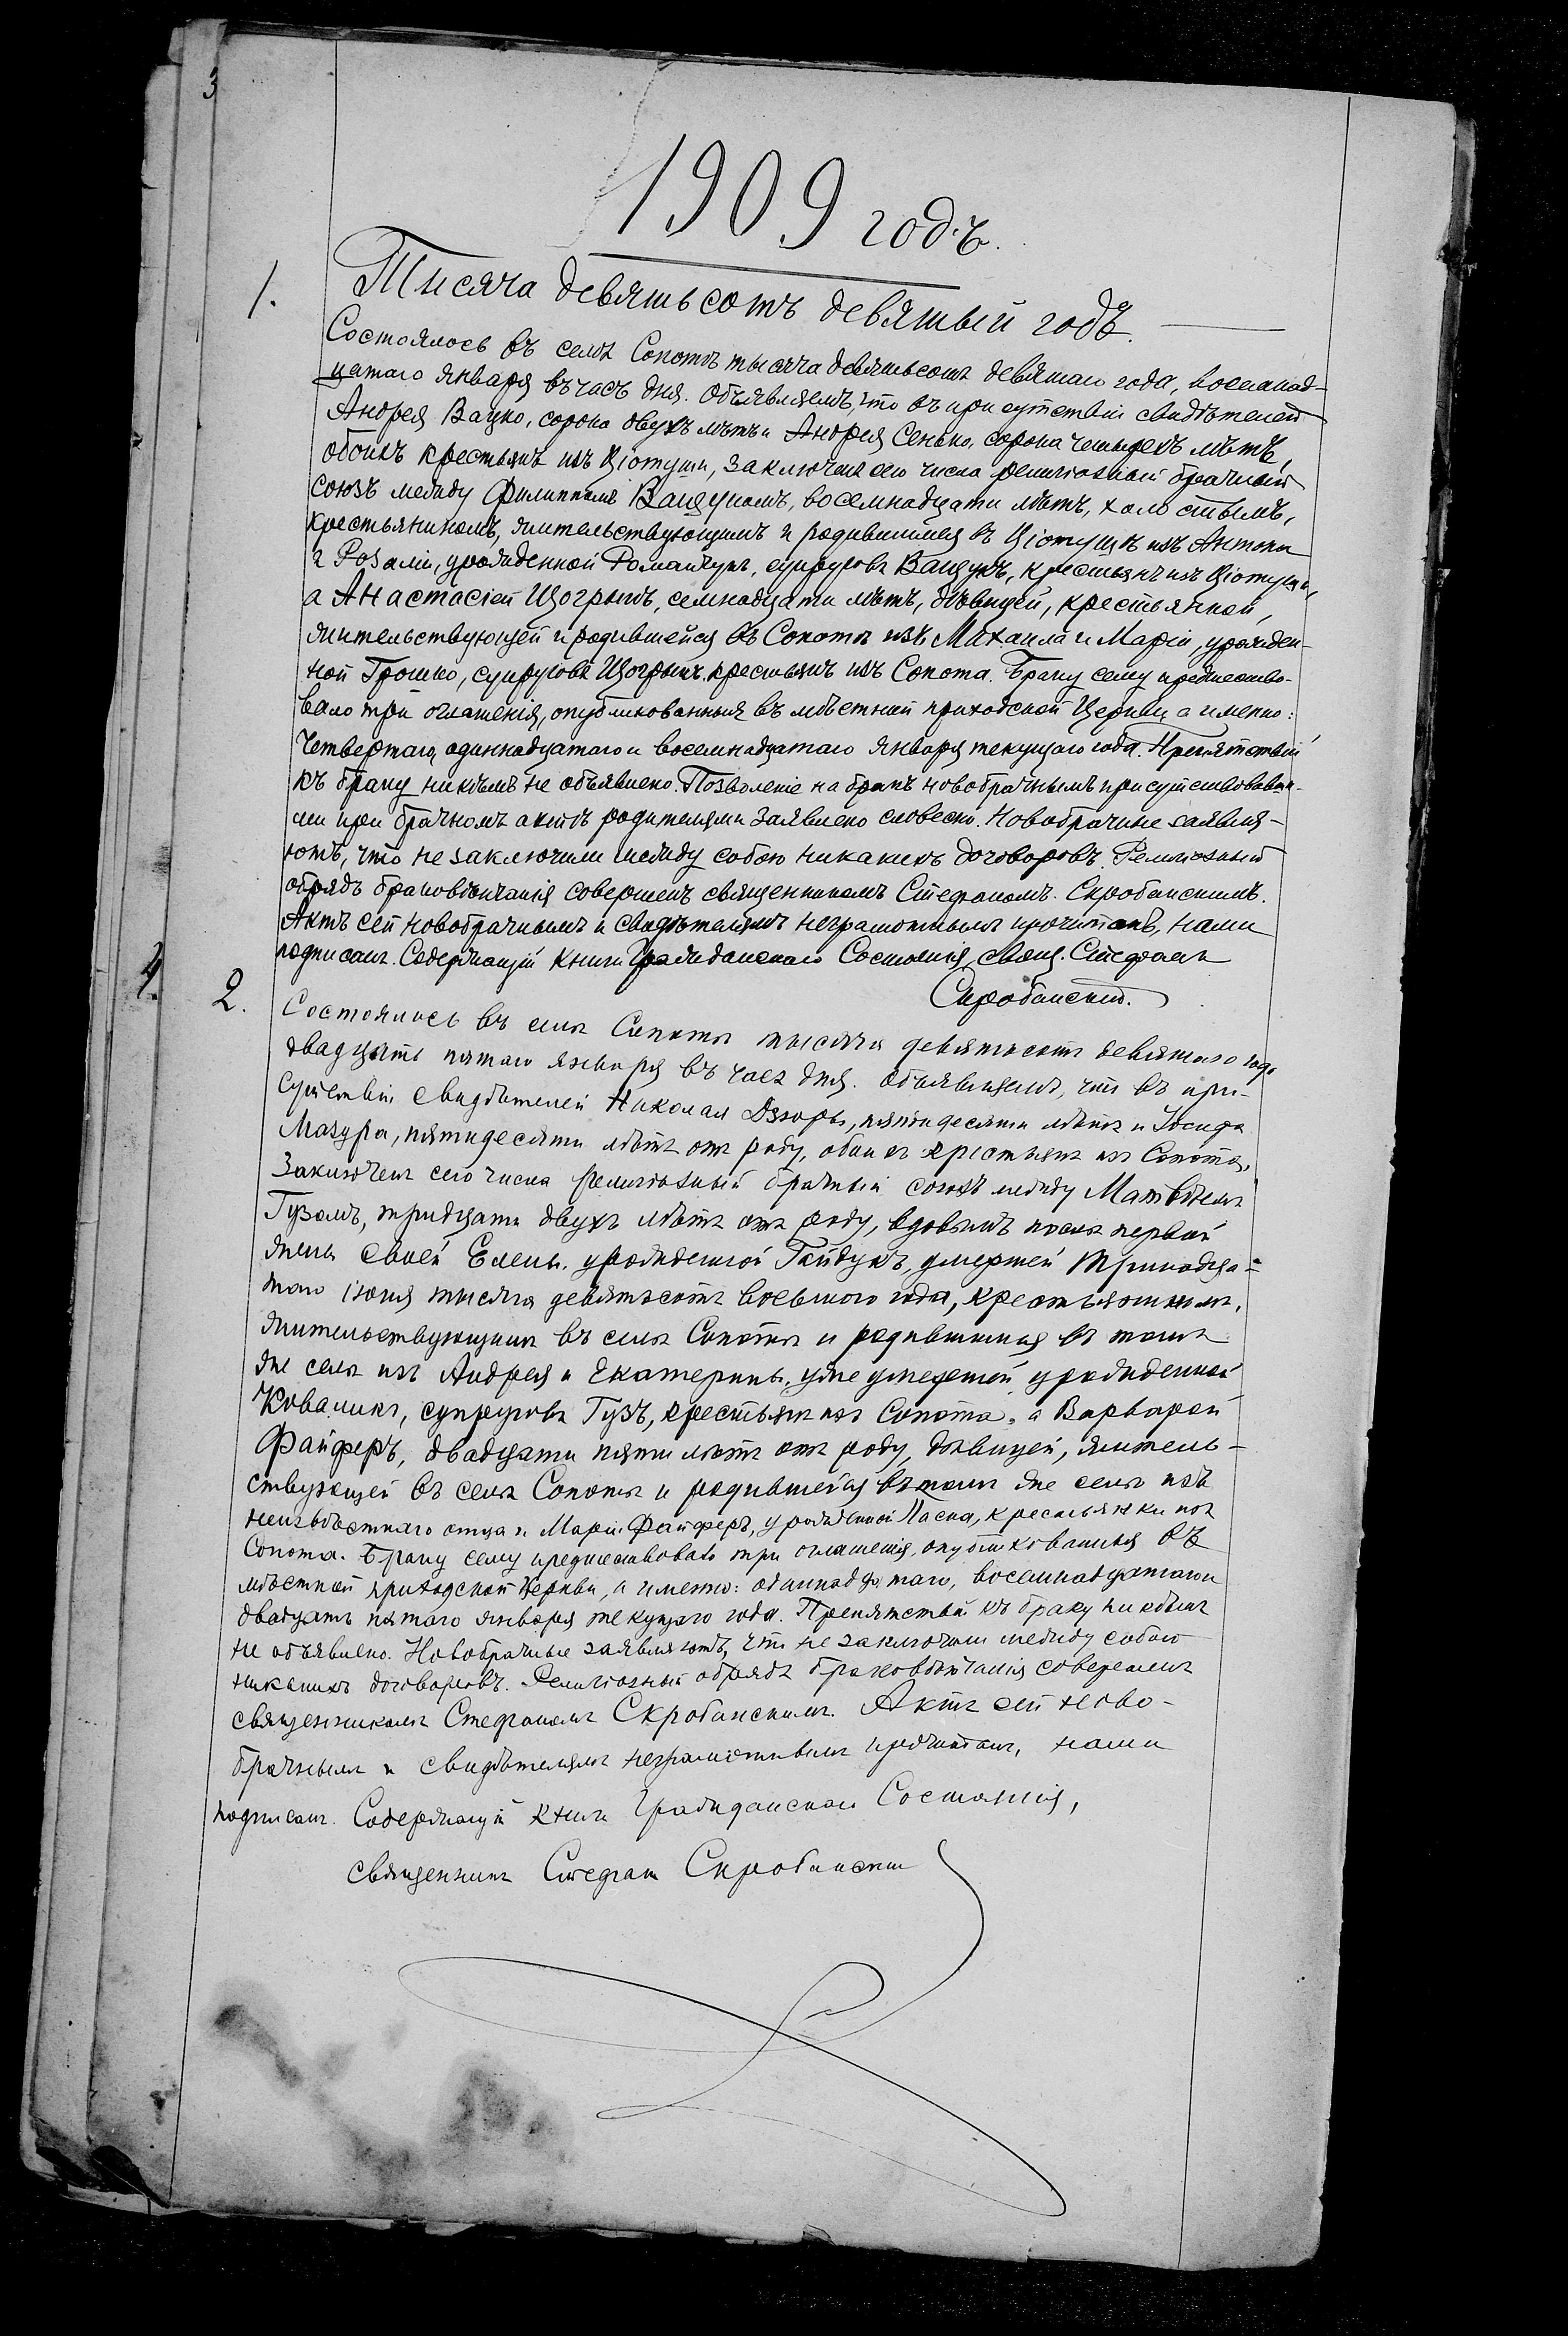 3
1909 годъ.
1.
Тысяча девятьсотъ девятый годъ.
Состоялось въ селѣ Сопотѣ тысяча девятьсотъ девятаго года, восемнад-
цатаго января въ часъ дня. Объявляемъ, что въ присутствіи свидѣтелей
Андрея Вацко, сорока двухъ лѣтъ и Андрея Сенько, сорока четырехъ лѣтъ,
обоихъ крестьянъ изъ Ціотуши, заключенъ сего числа религіозный брачный
союзъ между Филиппомъ Ващукомъ, восемнадцати лѣтъ, холостымъ,
крестьяниномъ, жительствующимъ и родившимся въ Ціотушѣ изъ Антона
и Розаліи, урожденной Романчукъ, супруговъ Ващукъ, крестьянъ изъ Ціотуши,
а Анастасіей Щогрынъ, семнадцати лѣтъ, дѣвицей, крестьянкой,
жительствующей и родившейся въ Сопотѣ изъ Михаила и Маріи, урожден-
ной Грошко, супруговъ Щогрынъ, крестьянъ изъ Сопота. Браку сему предшество-
вало три оглашенія, опубликованныя въ мѣстной приходской Церкви, а именно:
четвертаго, одиннадцатаго и восемнадцатаго января текущаго года. Препятствій
къ браку никѣмъ не объявлено. Позволеніе на бракъ новобрачнымъ присутствовавши-
ми при брачномъ актѣ родителями заявлено словесно. Новобрачные заявля-
ютъ, что не заключили между собою никакихъ договоровъ. Религіозный
обрядъ браковѣнчанія совершенъ священникомъ Стефаномъ Скробанскимъ.
Актъ сей новобрачнымъ и свидѣтелямъ неграмотнымъ прочитанъ, нами
подписанъ. Содержащій книги Гражданскаго Состоянія, свящ. Стефанъ
Скробанскій.
2.
Состоялось въ селѣ Сопотѣ тысяча девятьсотъ девятаго года
двадцать пятаго января въ часъ дня. Объявляемъ, что въ при-
сутствіи свидѣтелей Николая Дзюры, пятидесяти лѣтъ и Іосифа
Мазура, пятидесяти лѣтъ отъ роду, обоихъ крестьянъ изъ Сопота,
заключенъ сего числа религіозный брачный союзъ между Матвѣемъ
Гузомъ, тридцати двухъ лѣтъ отъ роду, вдовымъ послѣ первой
жены своей Елены, урожденной Гайдукъ, умершей тринадца-
таго іюня тысяча девятьсотъ восьмого года, крестьяниномъ,
жительствующимъ въ селѣ Сопотѣ и родившимся въ томъ
же селѣ изъ Андрея и Екатерины, уже умершей, урожденной
Коваликъ, супруговъ Гузъ, крестьянъ изъ Сопота, а Варварой
Файферъ, двадцати пяти лѣтъ отъ роду, дѣвицей, житель-
ствующей въ селѣ Сопотѣ и родившейся въ томъ же селѣ изъ
неизвѣстнаго отца и Маріи Файферъ, урожденной Ласка, крестьянки изъ
Сопота. Браку сему предшествовало три оглашенія, опубликованныя въ
мѣстной приходской Церкви, а именно: одиннадцатаго, восемнадцатаго и
двадцать пятаго января текущаго года. Препятствій къ браку никѣмъ
не объявлено. Новобрачные заявляютъ, что не заключили между собою
никакихъ договоровъ. Религіозный обрядъ браковѣнчанія совершенъ
священникомъ Стефаномъ Скробанскимъ. Актъ сей ново-
брачнымъ и свидѣтелямъ неграмотнымъ прочитанъ, нами
подписанъ. Содержащій книги Гражданскаго Состоянія,
священникъ Стефанъ Скробанскій